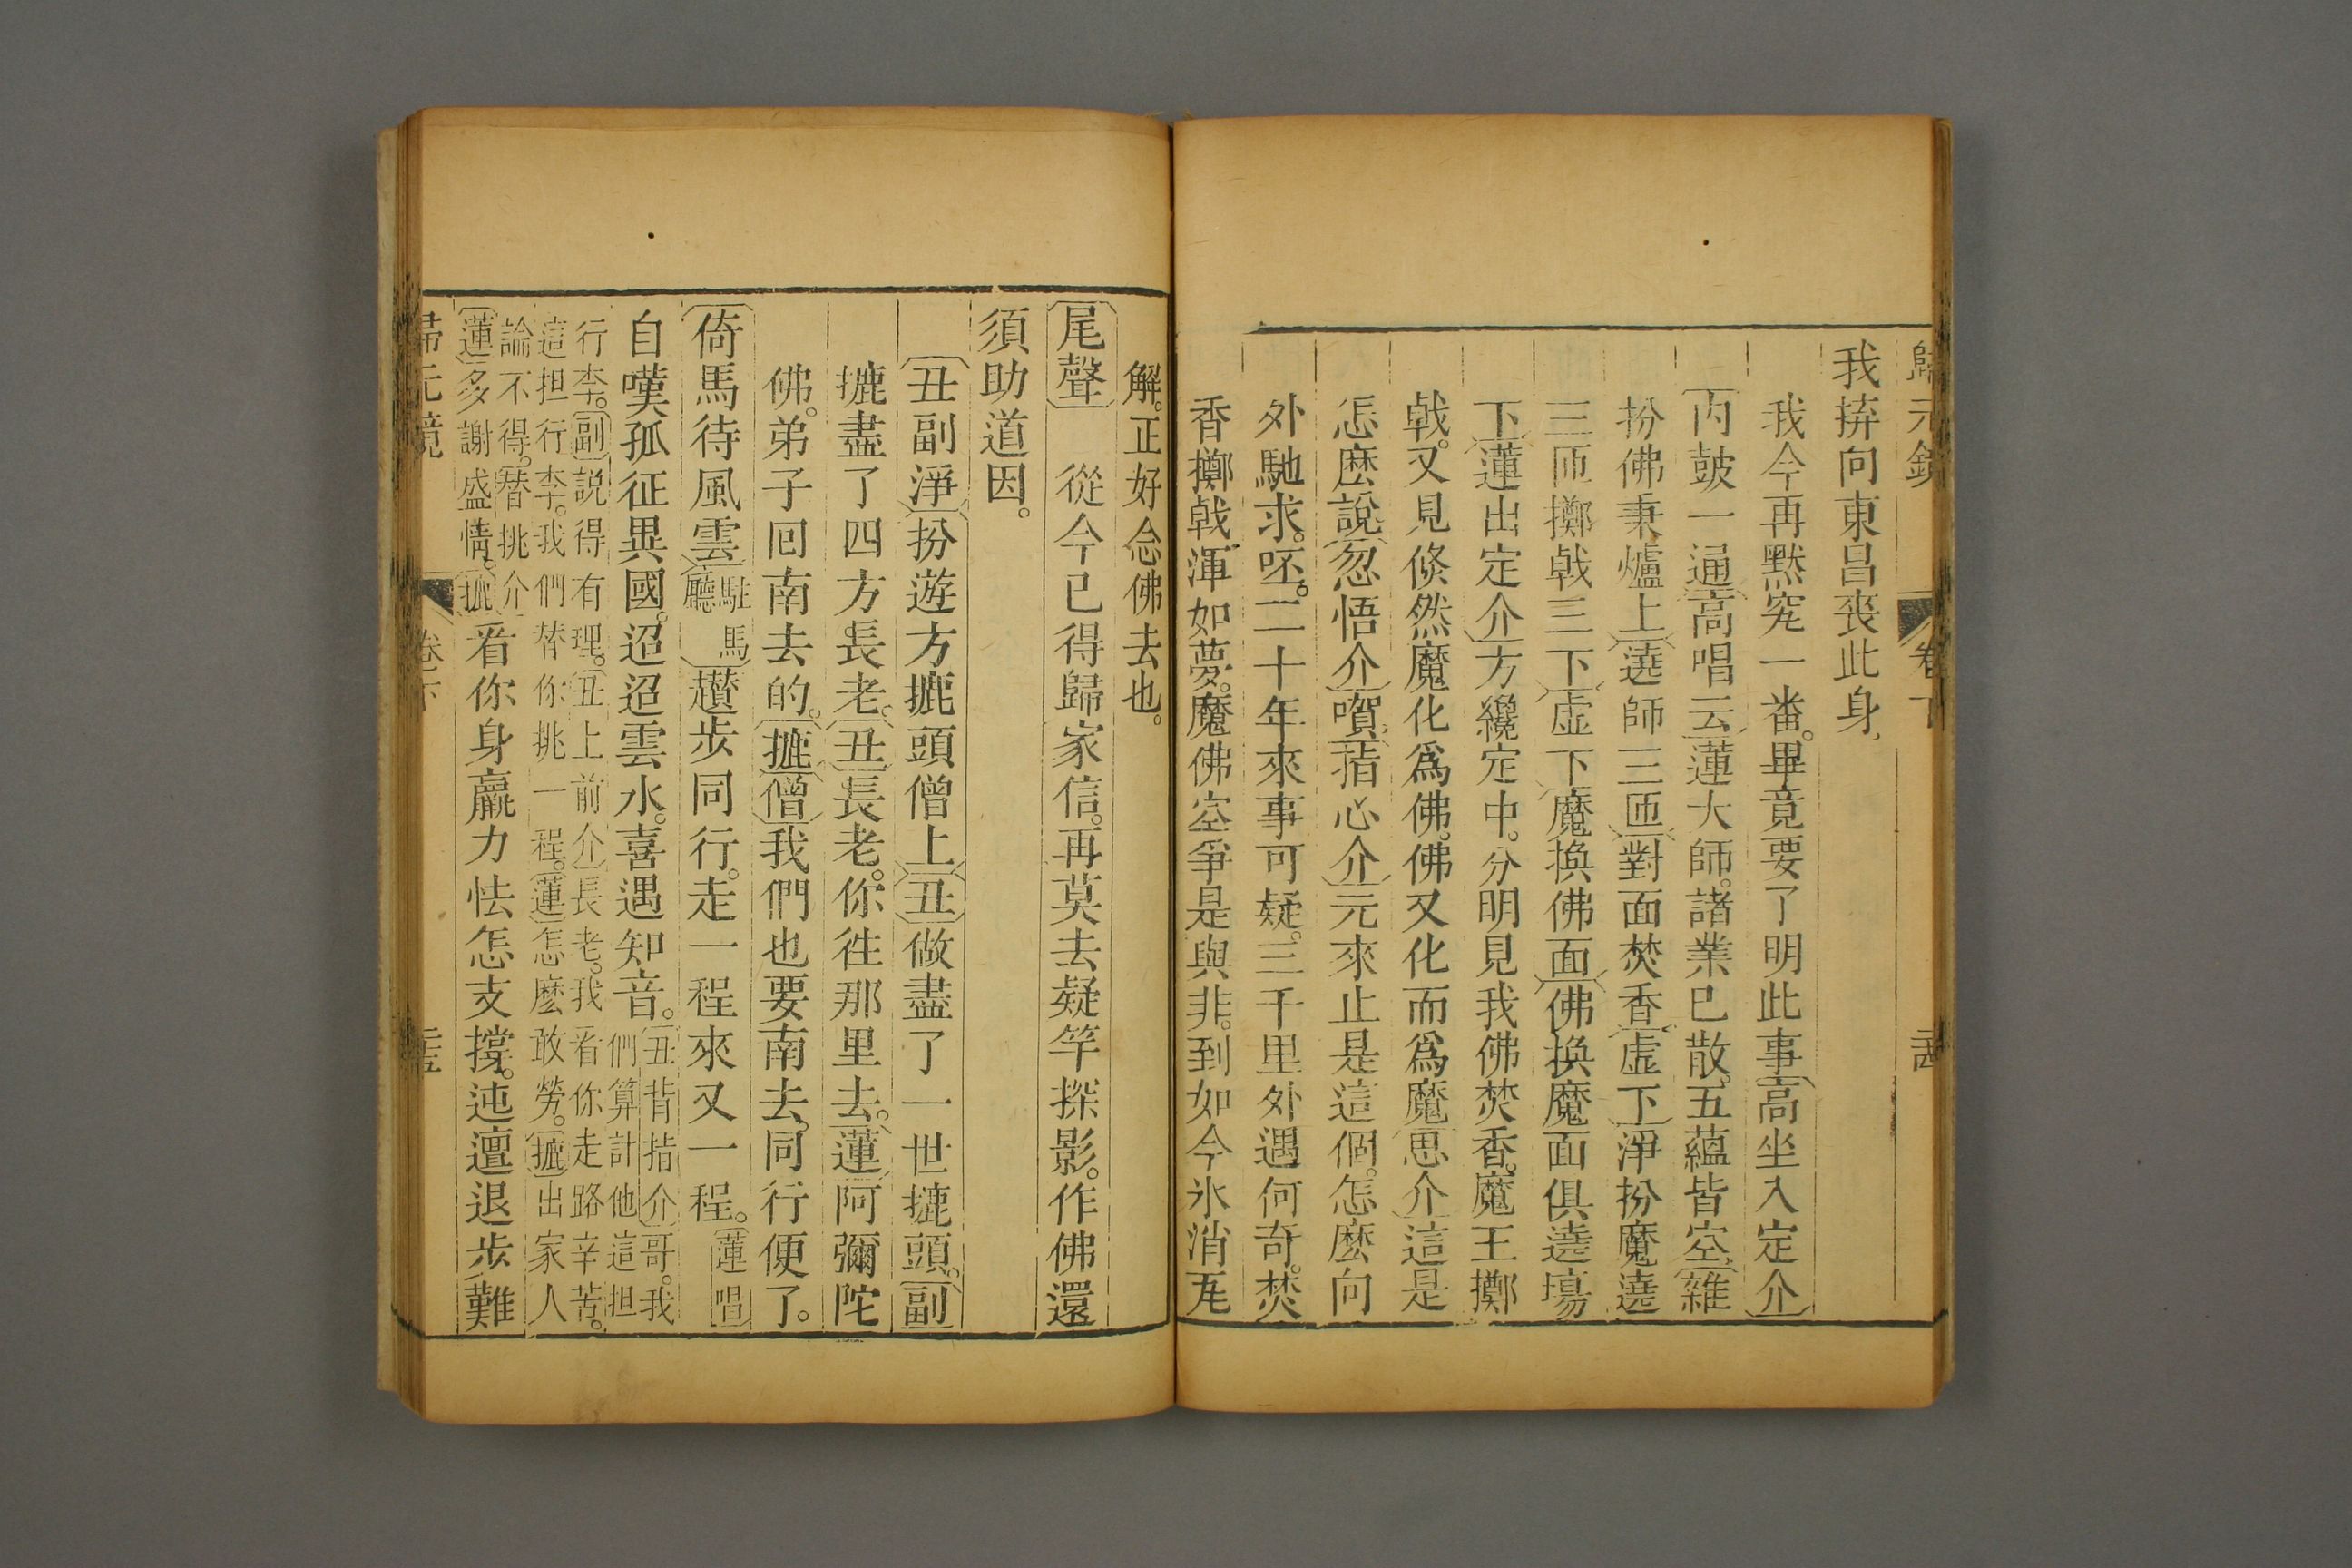 歸元鏡 卷下 三十四
我拚向東昌喪此身
我今再默究一畨。畢竟要了明此事高坐入定介
內鼓一通高唱云蓮大師。諸業已散。五蘊皆空雜
扮佛秉爐上遶師三匝對面焚香虛下淨扮魔遶
三匝擲戟三下虛下魔換佛面佛換魔面俱遶場
下蓮出定介方纔定中。分明見我佛焚香。魔王擲
戟。又見倐然魔化爲佛。佛又化而爲魔思介這是
怎麽說忽悟介嗄指心介元來止是這個。怎麽向
外馳求。呸。二十年來事可疑。三千里外遇何奇。焚
香擲戟渾如夢。魔佛空爭是與非。到如今氷消瓦
解。正好念佛去也。
尾聲 從今已得歸家信。再莫去疑竿探影。作佛還
須助道因。
丑副淨扮遊方攎頭僧上丑做盡了一世攎頭。副
攎盡了四方長老。丑長老。你徃那里去。蓮阿彌陀
佛。弟子回南去的。攎僧我們也要南去。同行便了。
倚馬待風雲駐馬廳趲步同行。走一程來又一程。蓮唱
自嘆孤征異國。迢迢雲水。喜遇知音。丑背指介哥。我們算計他這担
行李。副説得有理。丑上前介長老。我看你走路辛苦。
這担行李。我們替你挑一程。蓮怎麽敢勞。攎出家人
論不得。替挑介
蓮多謝盛情。攎看你身羸力怯怎支撐。迍邅退步難
歸元鏡 卷下